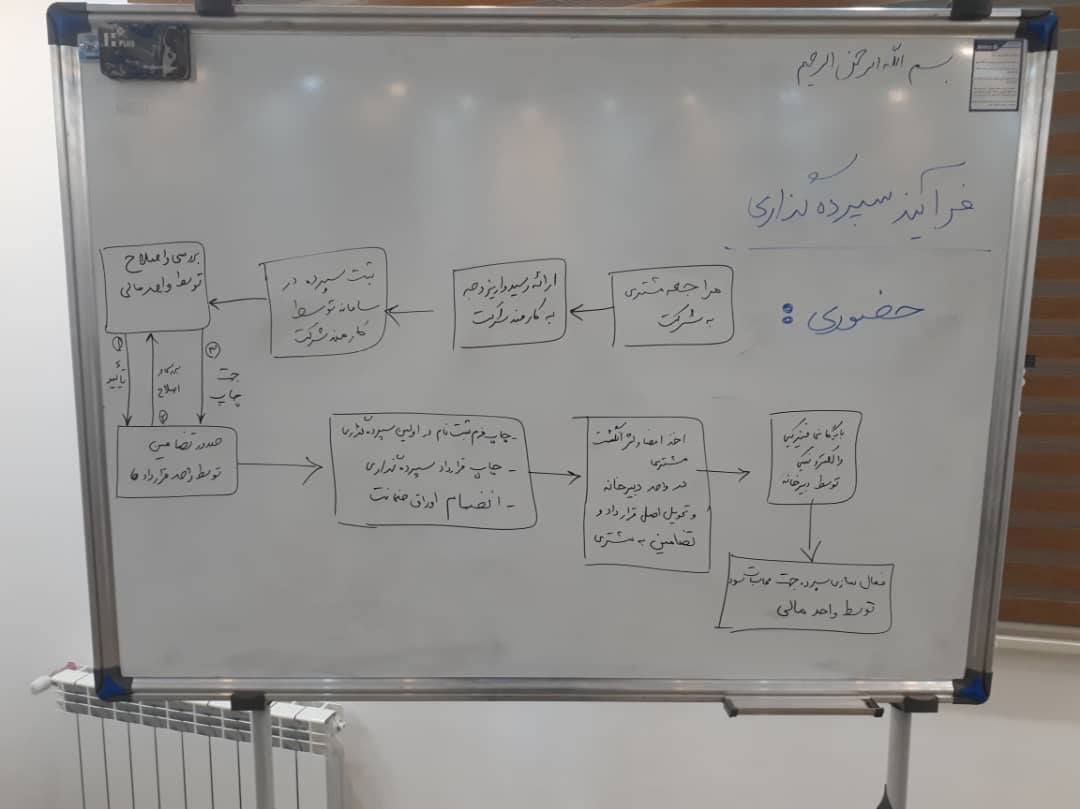 بسم الله الرحمن الرحیم
فرآیند سپرده گذاری
حضوری :
مراجعه مشتری
به شرکت
ارائه رسید واریز وجه
به کارمند شرکت
ثبت سپرده در
سامانه توسط
کارمند شرکت
بررسی و اصلاح
توسط واحد مالی
۱
تأیید
۲
بررسی و
اصلاح
۳
جهت
چاپ
صدور تضامین
توسط واحد قرارداد ها
- چاپ فرم ثبت نام در اولین سپرده گذاری
- چاپ قرارداد سپرده گذاری
- انضمام اوراق ضمانت
اخذ امضا و اثر انگشت
مشتری
در واحد دبیرخانه
و تحویل اصل قرارداد و
تضامین به مشتری
بایگانی فیزیکی
و الکترونیکی
توسط دبیرخانه
فعال سازی سپرده جهت محاسبات سود
توسط واحد مالی
PLUS